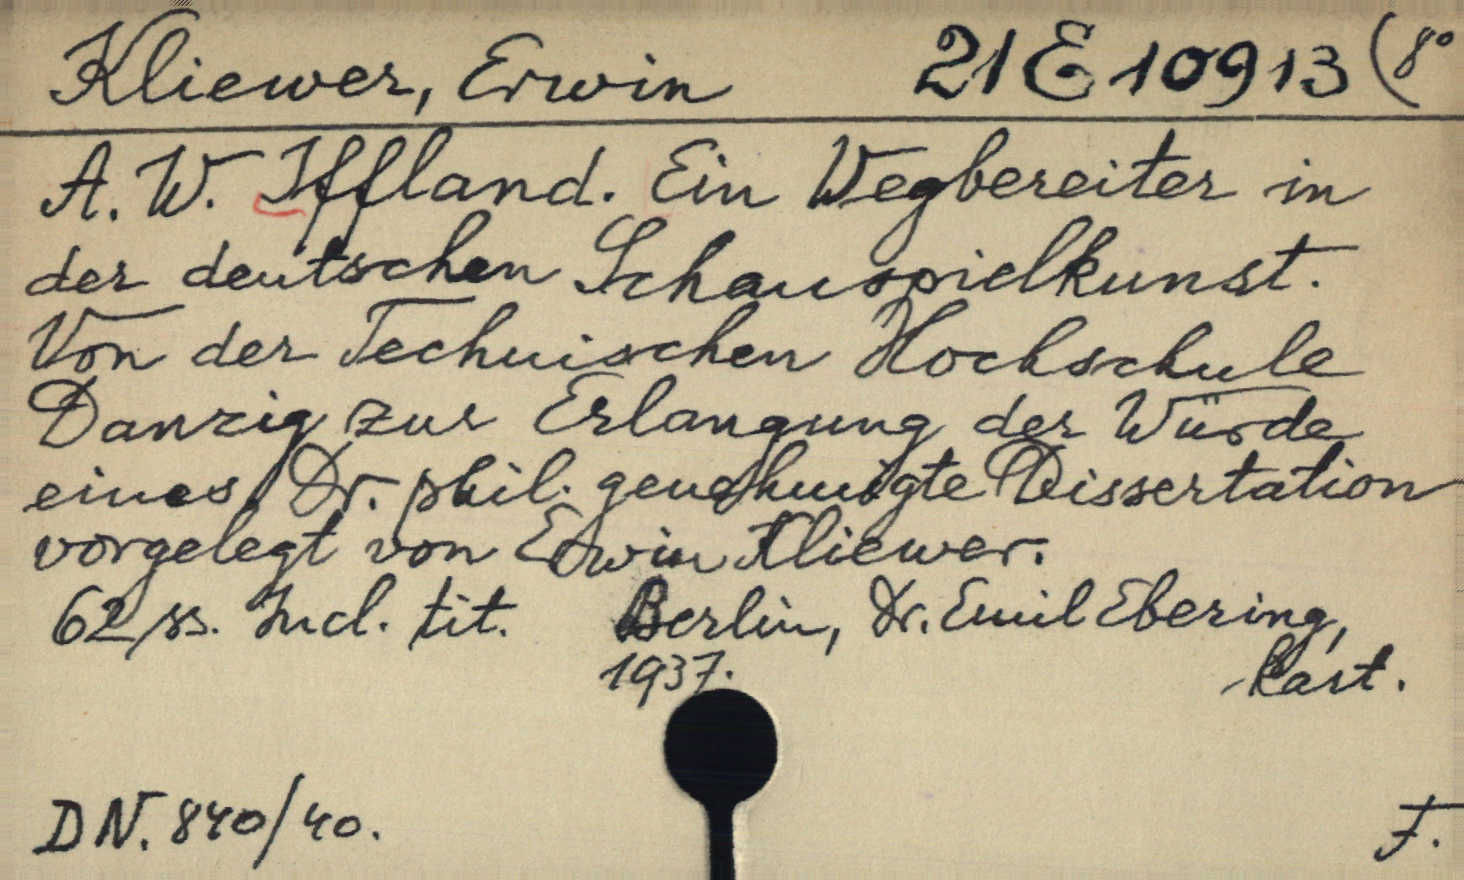 Kliewer, Erwin 21 E 10913 (8°
A. W. Iffland. Ein Wegbereiter in
der deutschen Schauspielkunst.
Von der Technischen Hochschule
Danzig zur Erlangung der Würde
eines Dr. phil. genehmigte Dissertation
vorgelegt von Erwin Kliewer.
62 ss. Incl. tit. Berlin, Dr. Emil Ebering,
1937. kart.
DN. 840/40. F.